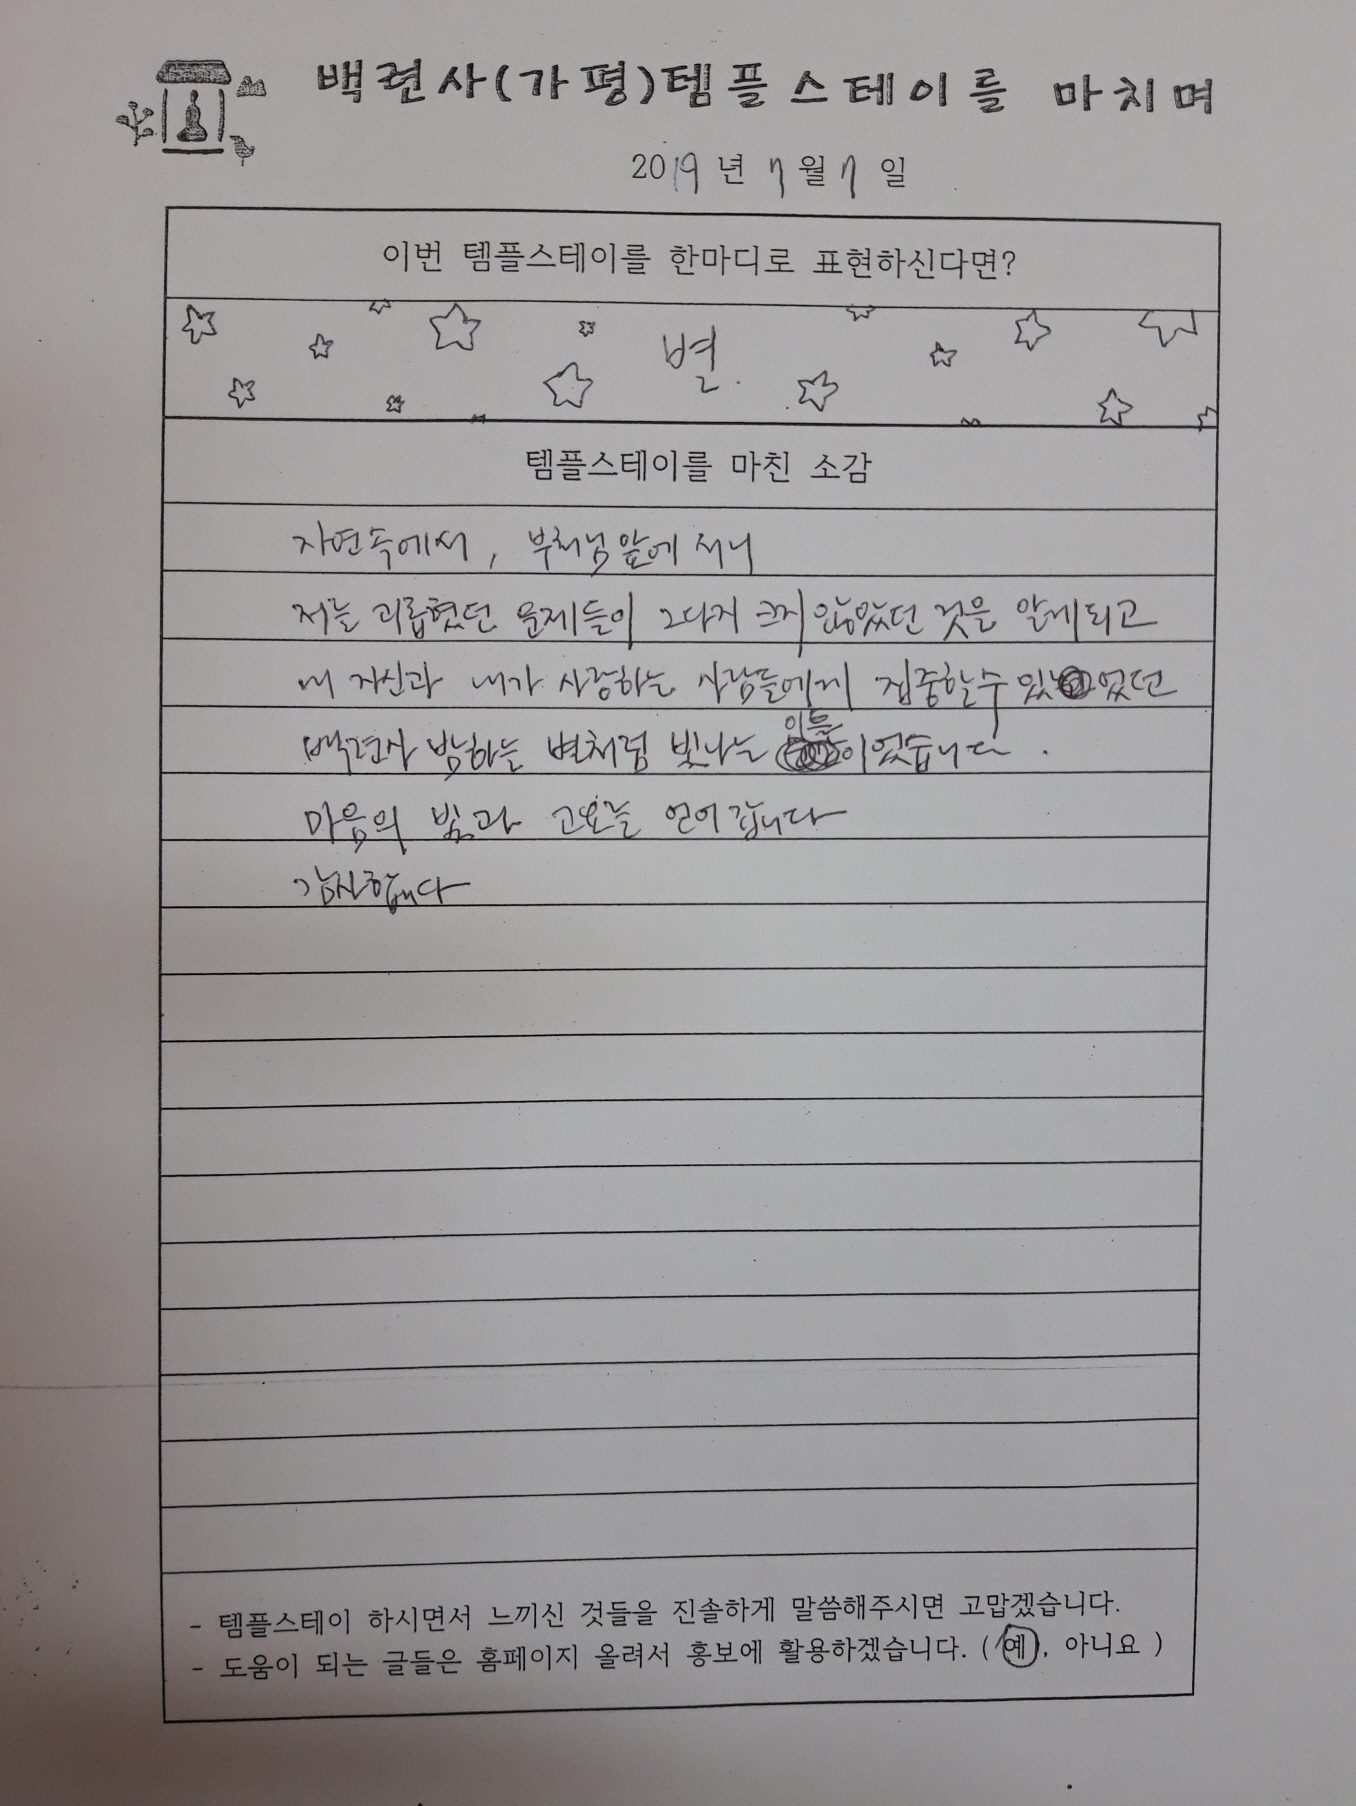 백련사(가평)템플스테이를 마치며
2019 년 7 월 7 일
이번 템플스테이를 한마디로 표현하신다면?
별.
템플스테이를 마친 소감
자연속에서, 부처님앞에 서니
저를 괴롭혔던 문제들이 그다지 크지 않았던 것을 알게되고
내 자신과 내가 사랑하는 사람들에게 집중할수 있었던
백련사 밤하늘 별처럼 빛나는 이틀이었습니다.
마음의 빛과 고요를 얻어갑니다
감사합니다
- 템플스테이 하시면서 느끼신 것들을 진솔하게 말씀해주시면 고맙겠습니다.
- 도움이 되는 글들은 홈페이지 올려서 홍보에 활용하겠습니다. ( 예, 아니요 )